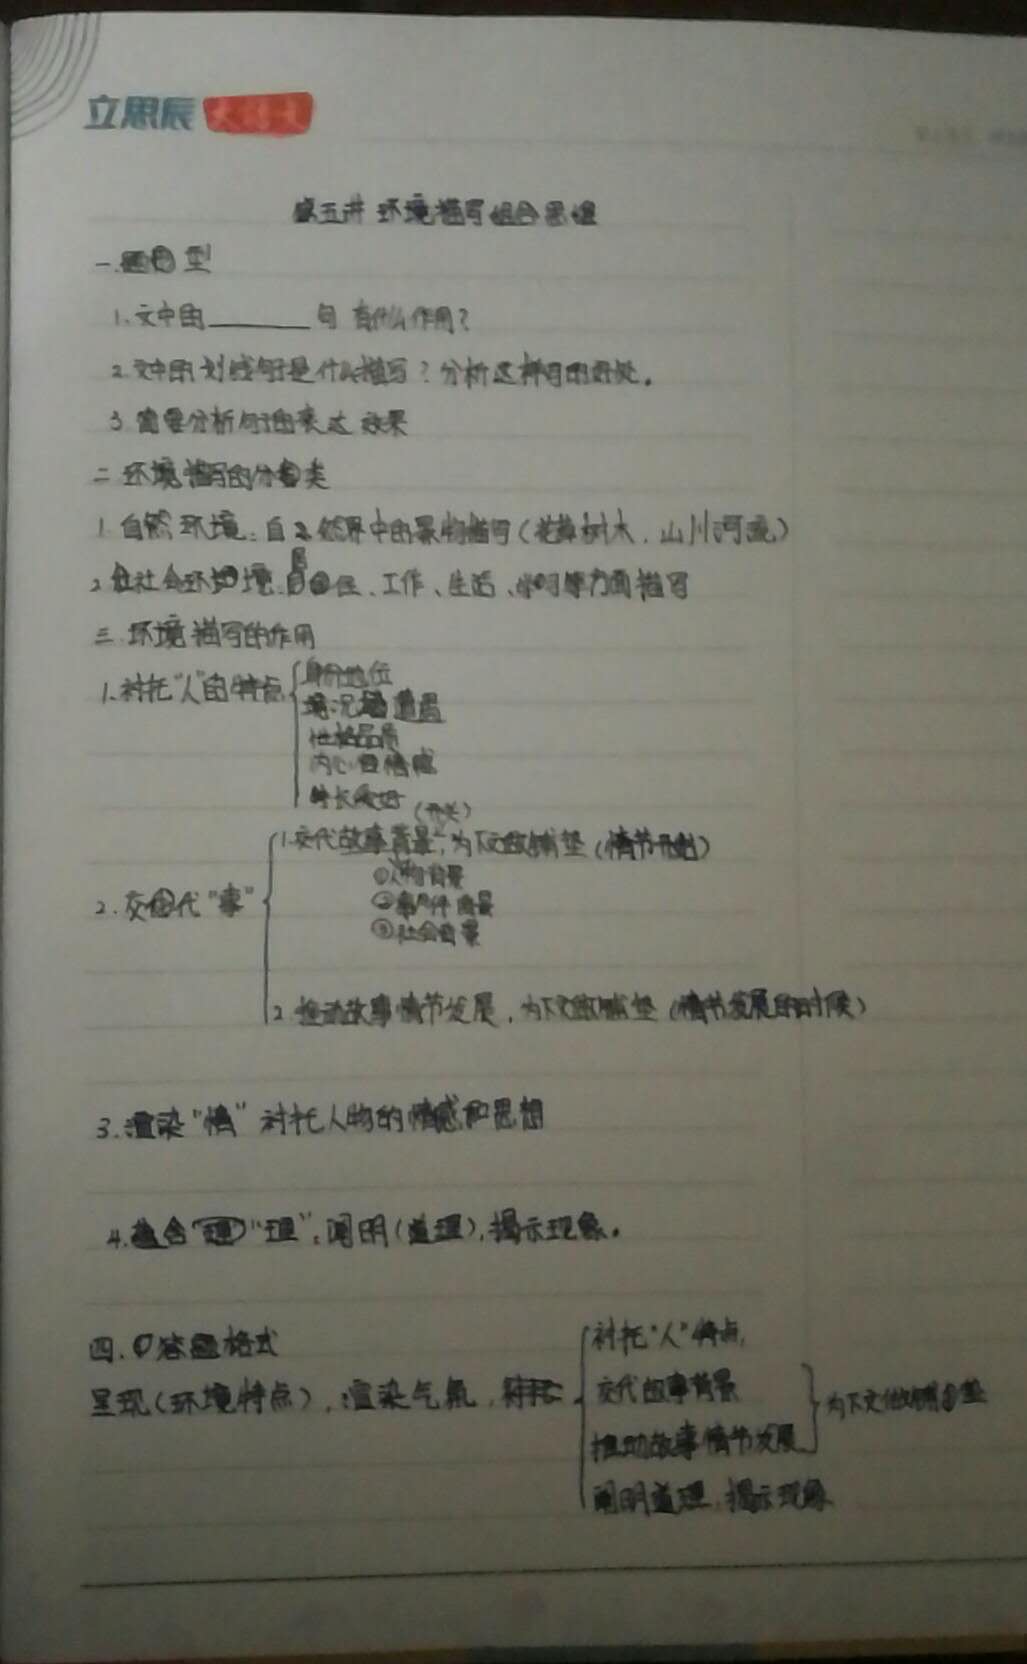 立思辰 大语文
第五讲 环境描写组合思维
一.题目型
1.文中的________句有什么作用?
2.文中的划线句子是什么描写?分析这样写的好处。
3.简要分析句子的表达效果
二.环境描写的分类
1.自然环境:自然界中的景物描写(花草树木、山川河流)
2.社会环境:居住、工作、生活、等方面描写
三.环境描写的作用
1.衬托"人"的特点
身份地位
境况遭遇
性格品质
内心情感
特长爱好
(开头)
2.交代"事"
1.交代故事背景,为下文做铺垫(情节开始)
①人物背景
②事件背景
③社会背景
2.推动故事情节发展,为下文做铺垫(情节发展的时候)
3.渲染"情" 衬托人物的情感和思想
4.蕴含"理":阐明(道理),揭示现象。
四.答题格式
呈现(环境特点),渲染气氛,
衬托"人"特点,
交代故事背景
推动故事情节发展
为下文做铺垫
阐明道理,揭示现象